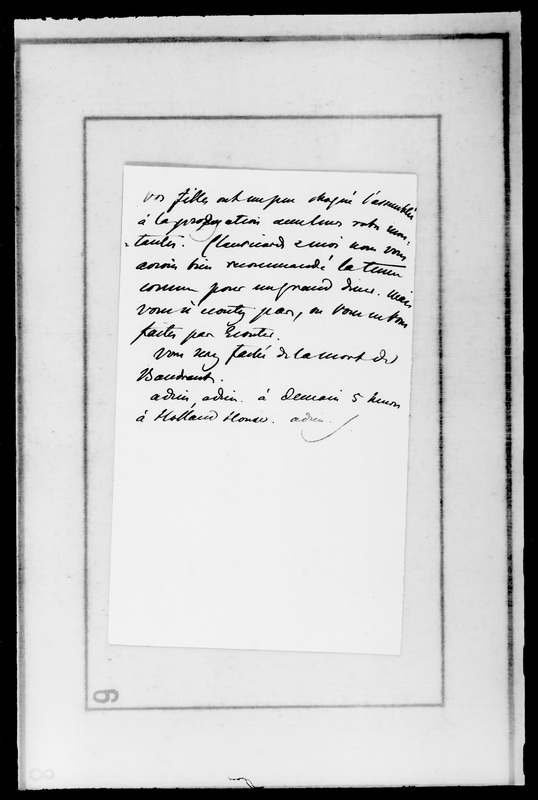 vos filles ont un peu choqué l'assemblée
à la prorogation avec leurs robes mon-
-tantes. Clauricard & moi nous vous
avions bien recommandé la tenue
comme pour un grand diner. Mais
vous n'écoutez pas, ou vous ne vous
faites pas écouter.
vous serez fachée de la mort de
Baudrand.
adieu, adieu. à demain 5 heures
à Holland House. adieu.
6
8